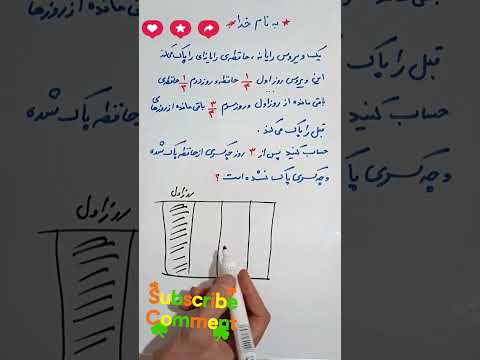 به نام خدا
یک ویروس رایانه، حافظه‌ی رایانه‌ای را پاک می‌کند
این ویروس روز اول ۱/۴ حافظه و روز دوم ۱/۳ حافظه‌ی
باقی مانده از روز اول و روز سوم ۳/۴ باقی مانده از روزهای
قبل را پاک می‌کند.
حساب کنید پس از ۳ روز چه کسری از حافظه پاک شده
و چه کسری پاک نشده است؟
روز اول
Subscribe
Comment